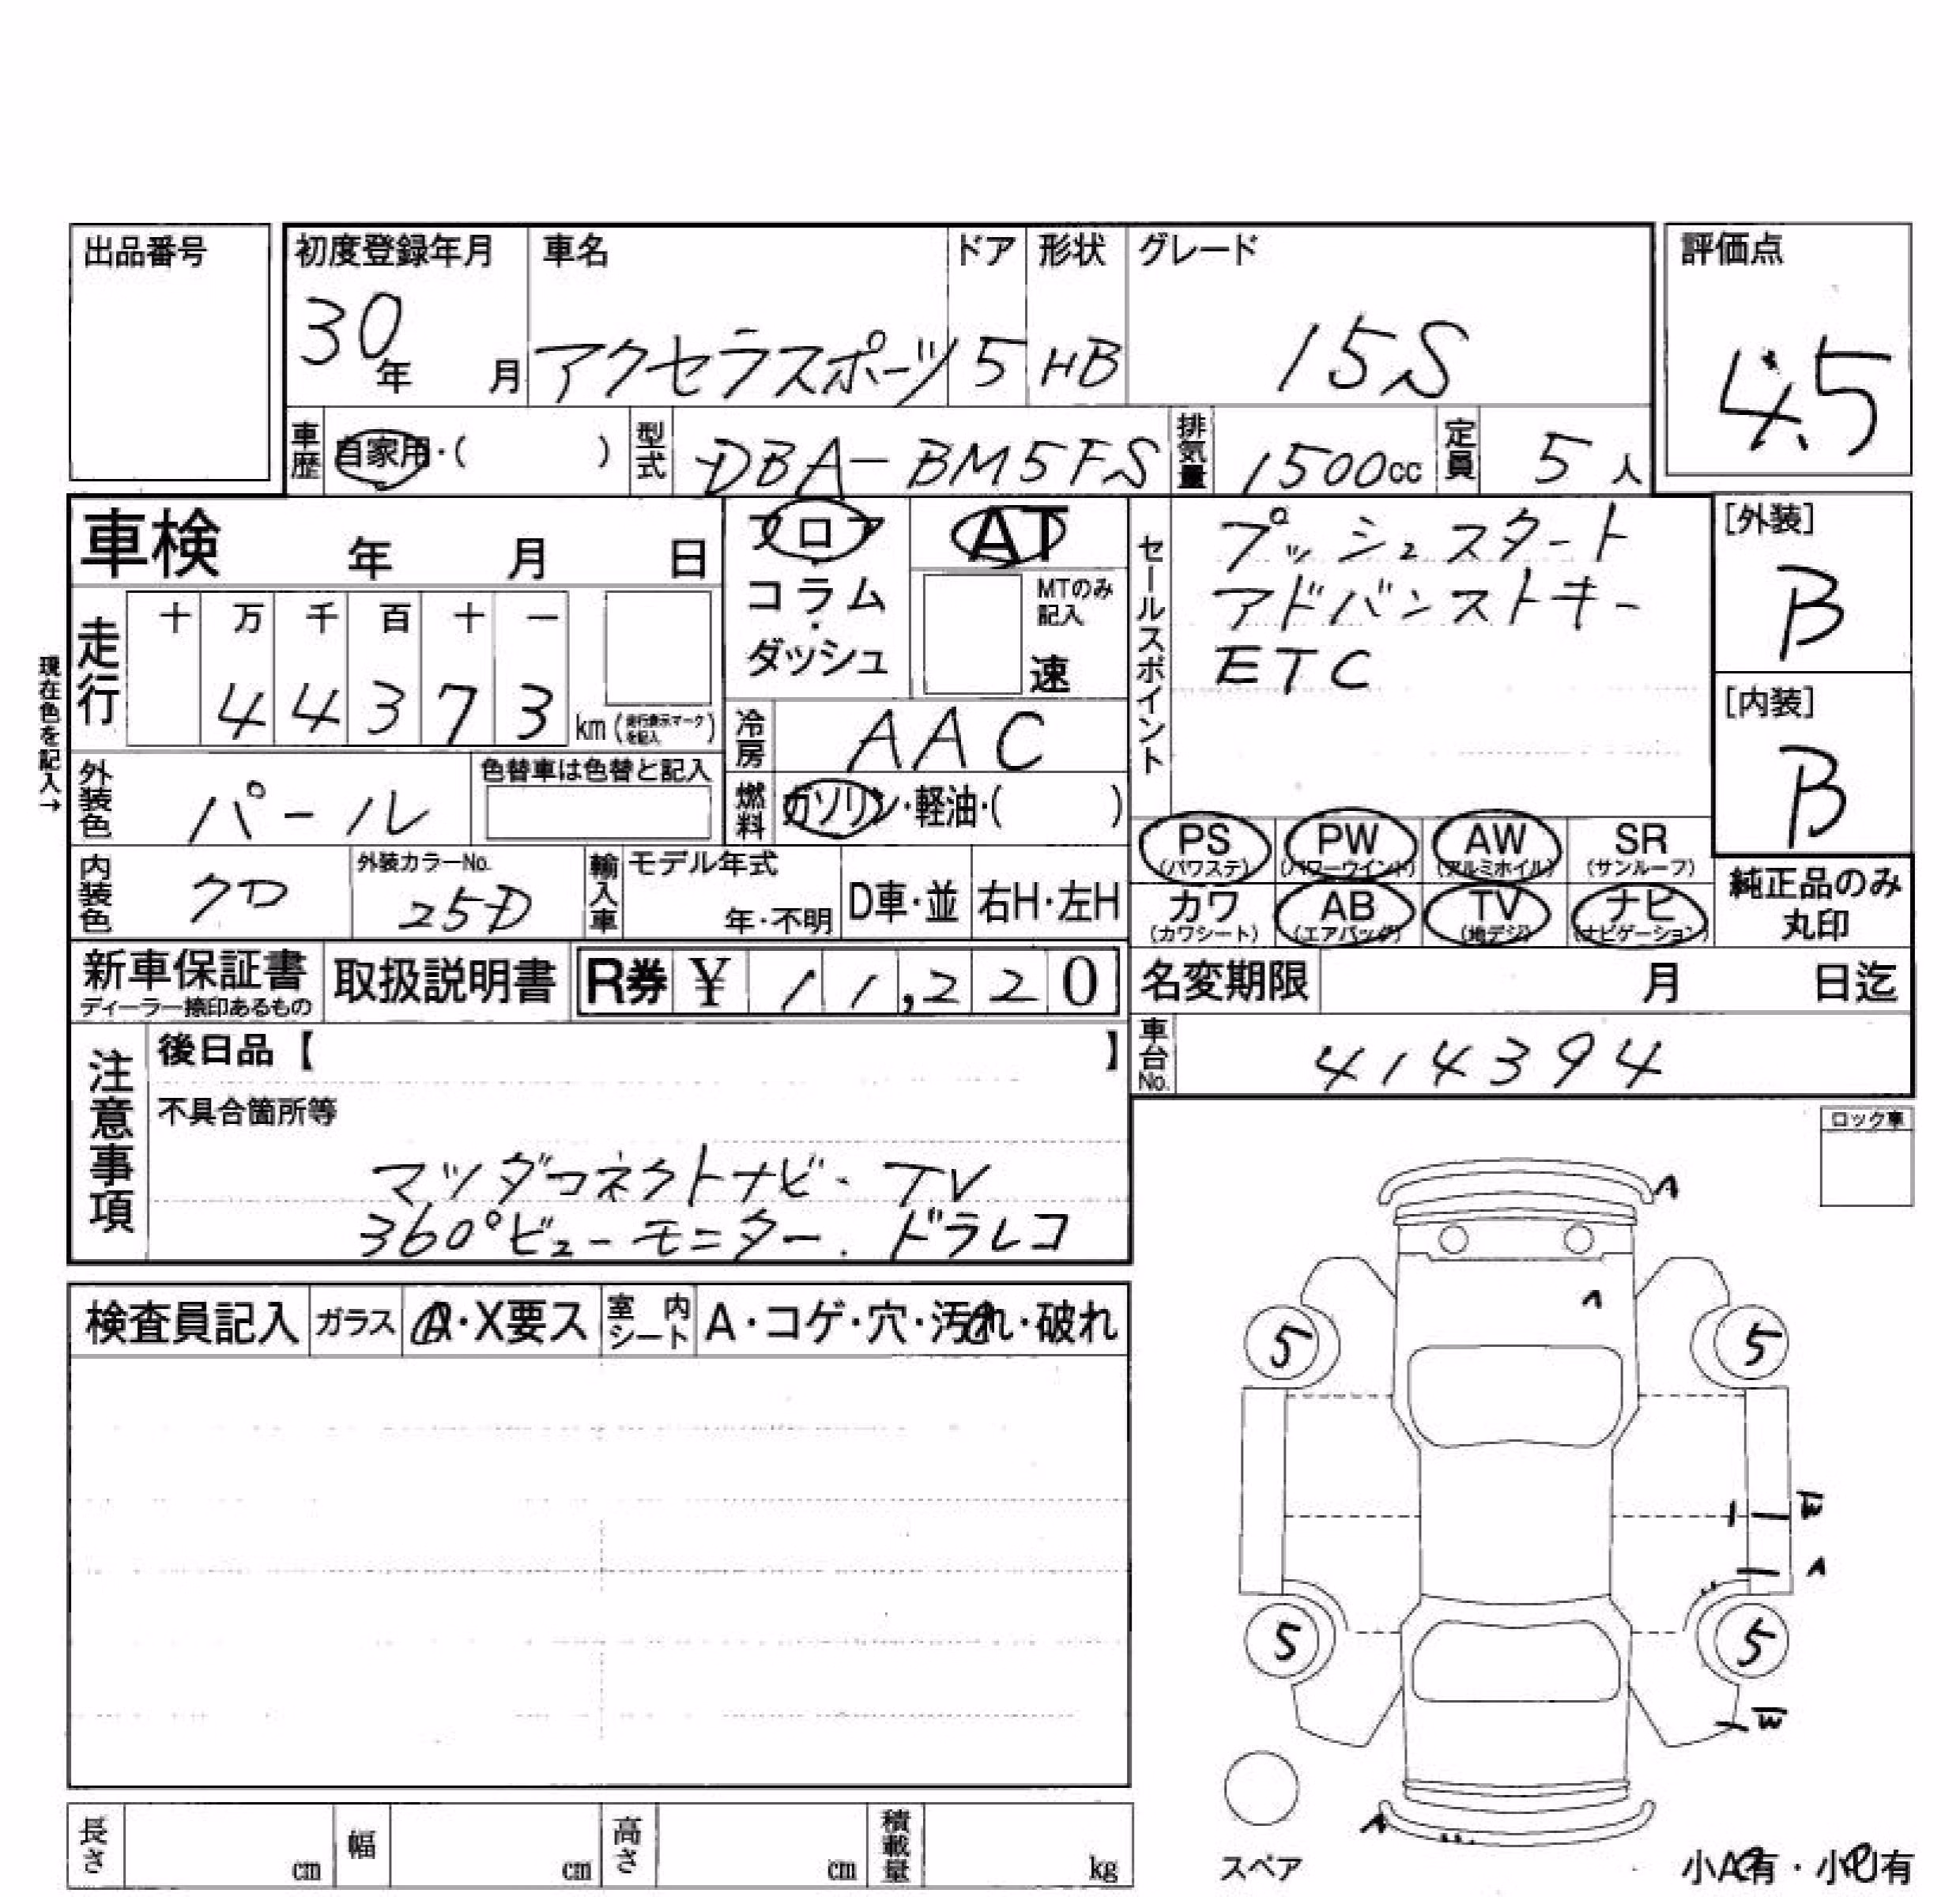 出品番号
初度登録年月 車名 ドア 形状 グレード 評価点
30年 月 アクセラスポーツ 5 HB 15S 4.5
車歴 自家用・( ) 型式 DBA-BM5FS 排気量 1500cc 定員 5人
車検 年 月 日
フロア・コラム・ダッシュ
AT
MTのみ記入
速
セールスポイント
プッシュスタート
アドバンストキー
ETC
[外装]
B
[内装]
B
現在色を記入→
走行 十 万 千 百 十 一
4 4 3 7 3 km(走行表示マークを記入)
冷房 AAC
外装色 パール 色替車は色替と記入
燃料 ガソリン・軽油・( )
PS PW AW SR
(パワステ) (パワーウインド) (アルミホイル) (サンルーフ)
カワ AB TV ナビ
(カワシート) (エアバッグ) (地デジ) (ナビゲーション)
純正品のみ
丸印
内装色 クロ 外装カラーNo. 25D 輸入車 モデル年式 年・不明 D車・並 右H・左H
新車保証書 取扱説明書 R券 ¥ 11,220 名変期限 月 日迄
ディーラー捺印あるもの
車台No. 414394
注意事項
後日品【 】
不具合箇所等
マツダコネクトナビ. TV
360°ビューモニター. ドラレコ
ロック車
検査員記入 ガラス A・X要ス 室内シート A・コゲ・穴・汚れ・破れ
A
A
5 5
W
A
5 5
W
A
スペア
小A有・小U有
長さ cm 幅 cm 高さ cm 積載量 kg